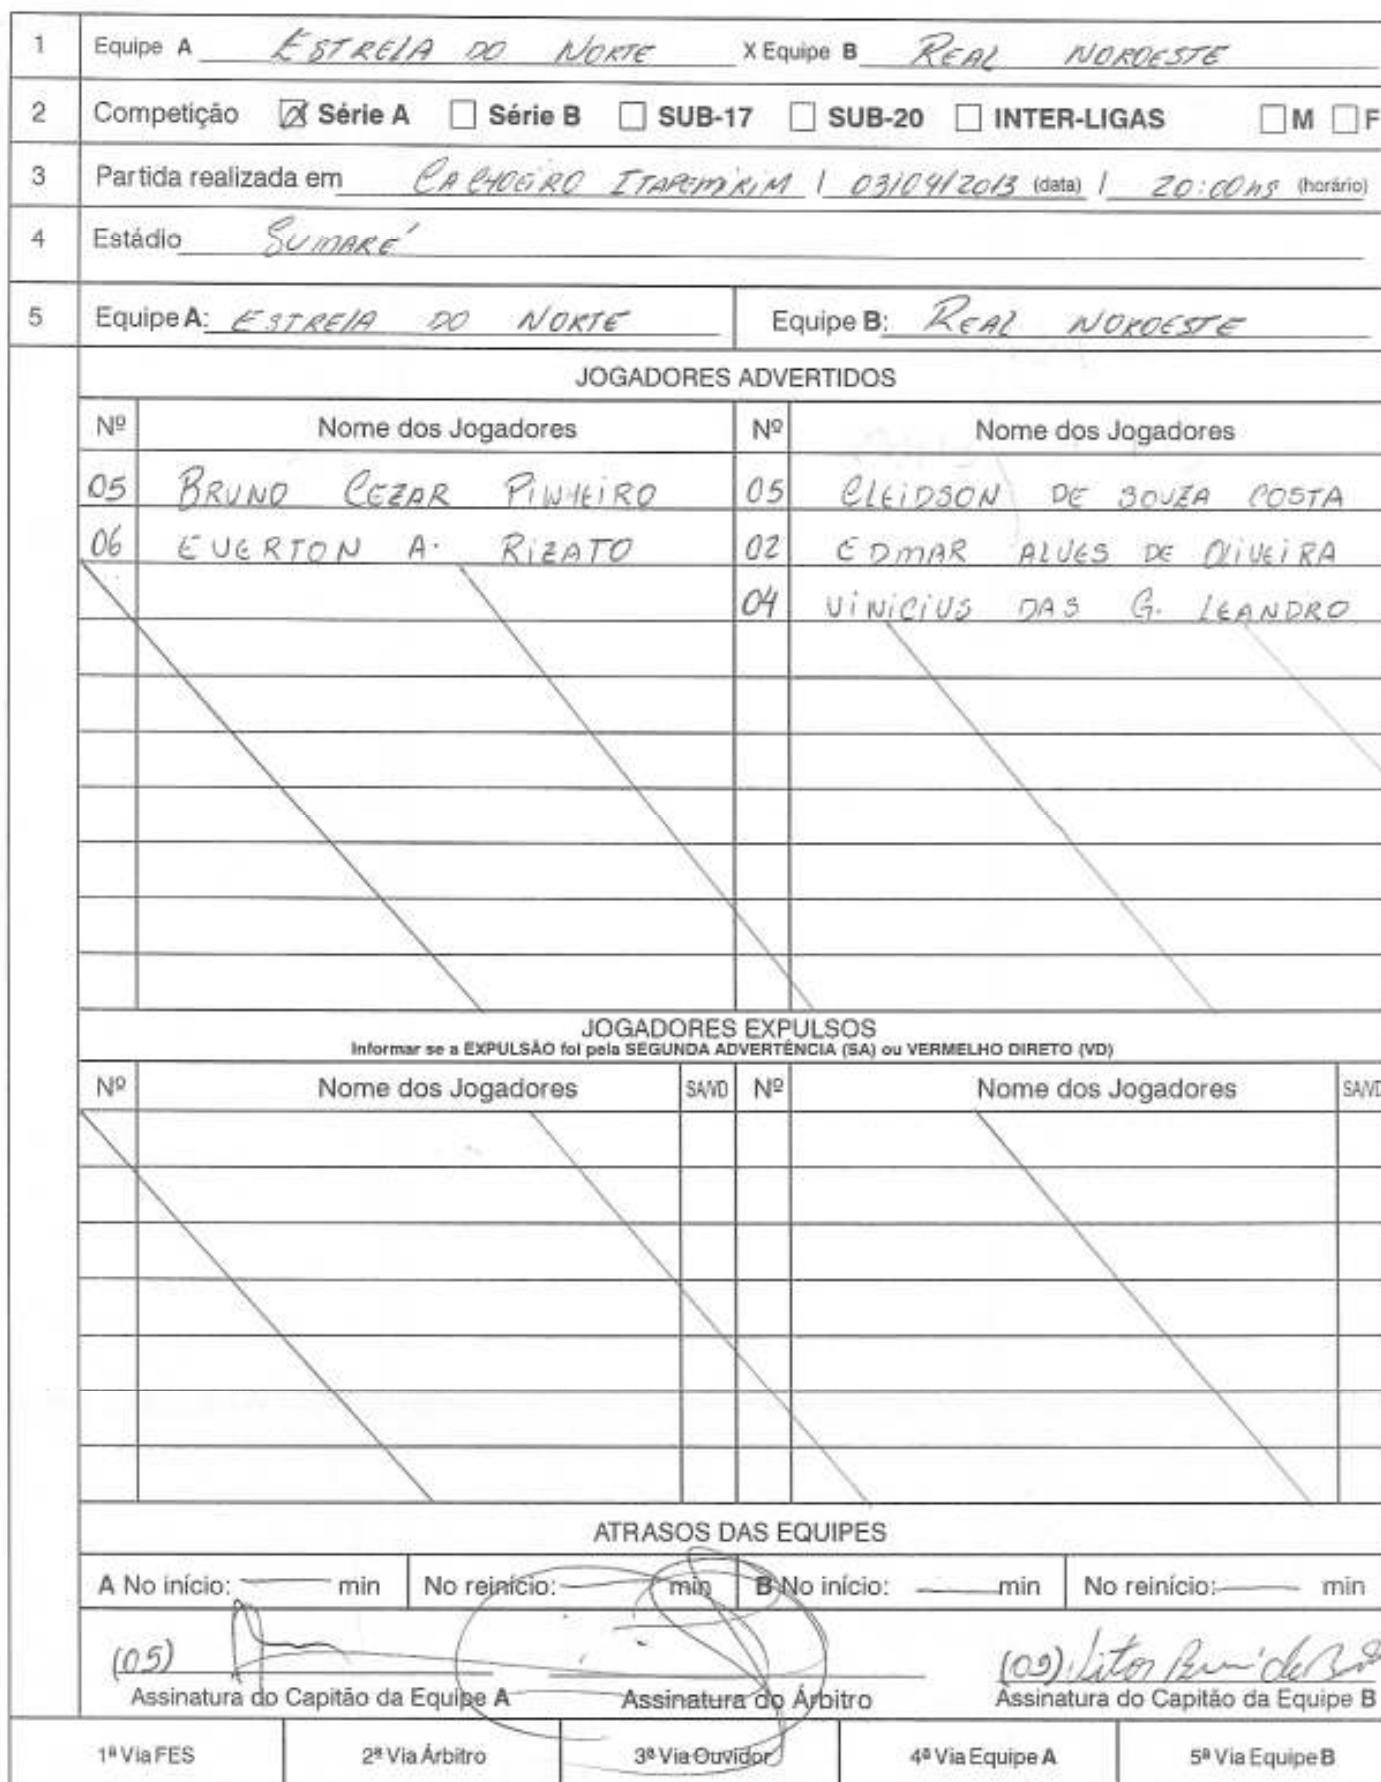 1 Equipe A ESTRELA DO NORTE X Equipe B REAL NOROESTE
2 Competição ☒ Série A ☐ Série B ☐ SUB-17 ☐ SUB-20 ☐ INTER-LIGAS ☐ M ☐ F
3 Partida realizada em CACHOEIRO ITAPEMIRIM / 03/04/2013 (data) / 20:00hs (horário)
4 Estádio SUMARÉ
5 Equipe A: ESTRELA DO NORTE Equipe B: REAL NOROESTE
JOGADORES ADVERTIDOS
Nº Nome dos Jogadores Nº Nome dos Jogadores
05 BRUNO CEZAR PINHEIRO 05 CLEIDSON DE SOUZA COSTA
06 EVERTON A. RIZATO 02 EDMAR ALVES DE OLIVEIRA
04 VINICIUS DAS G. LEANDRO
JOGADORES EXPULSOS
Informar se a EXPULSÃO foi pela SEGUNDA ADVERTÊNCIA (SA) ou VERMELHO DIRETO (VD)
Nº Nome dos Jogadores SA/VD Nº Nome dos Jogadores SA/VD
ATRASOS DAS EQUIPES
A No início: — min No reinício: — min B No início: — min No reinício: — min
(05) (09) Vitor
Assinatura do Capitão da Equipe A Assinatura do Árbitro Assinatura do Capitão da Equipe B
1ª Via FES 2ª Via Árbitro 3ª Via Ouvidor 4ª Via Equipe A 5ª Via Equipe B